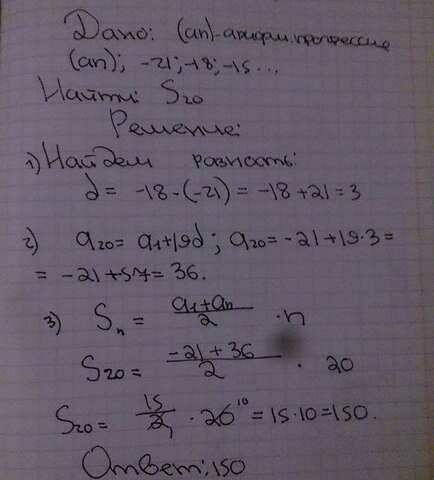 Дано: (an)-арифм. прогрессия
(an); -21; -18; -15 ...
Найти: S20
Решение:
1) Найдем разность:
d = -18 - (-21) = -18 + 21 = 3
2) a20 = a1 + 19d; a20 = -21 + 19·3 =
= -21 + 57 = 36.
3) Sn = a1 + an / 2 · n
S20 = -21 + 36 / 2 · 20
S20 = 15 / 2 1 · 20 10 = 15·10 = 150.
Ответ: 150